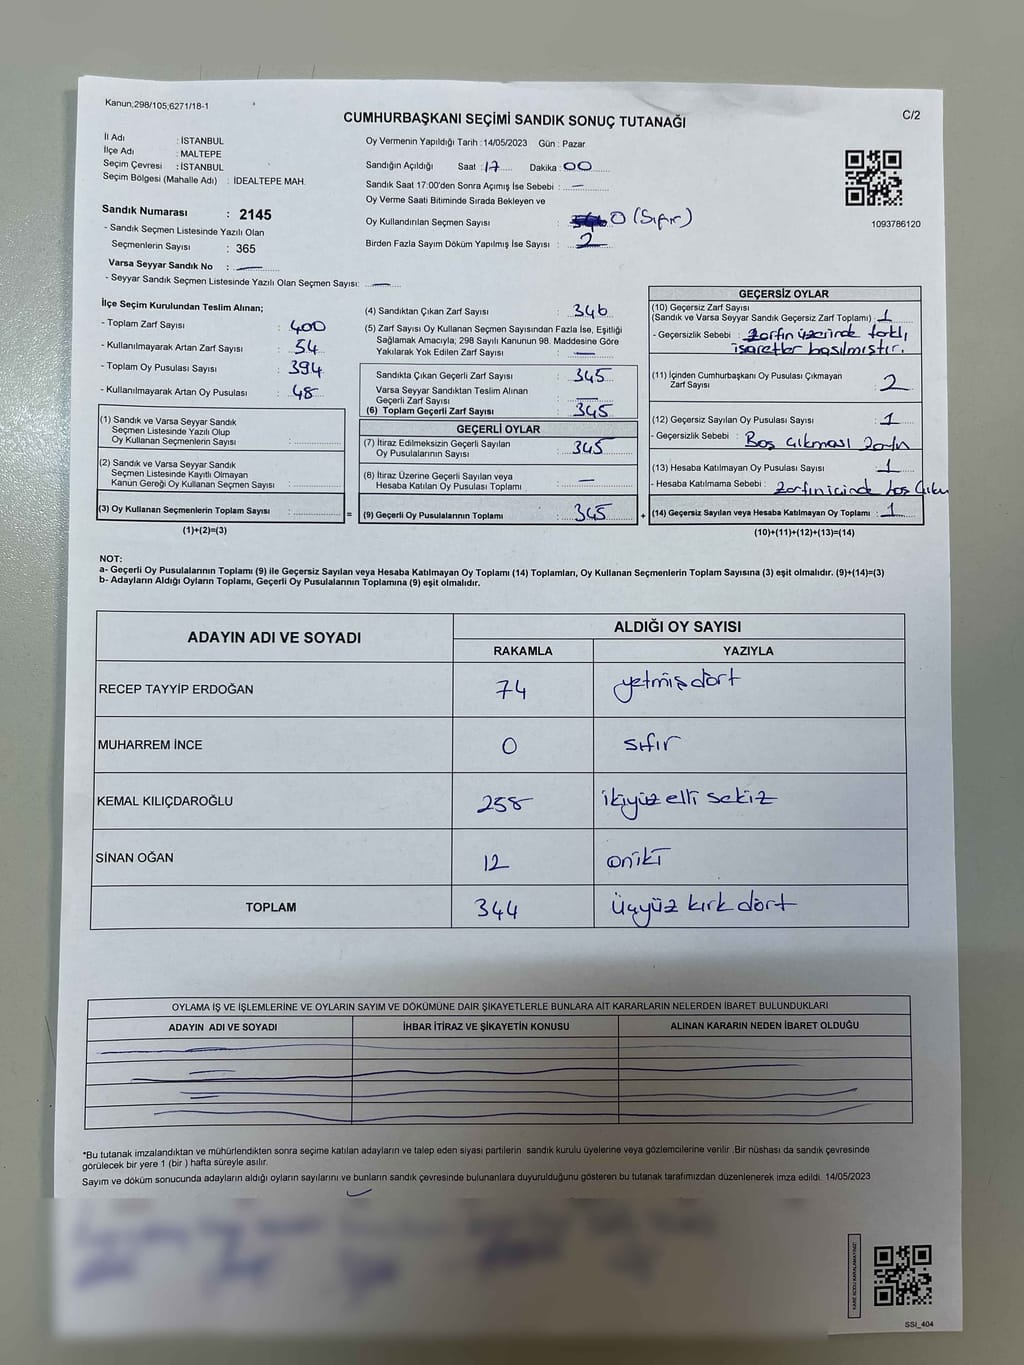 Kanun;298/105;6271/18-1
C/2
CUMHURBAŞKANI SEÇİMİ SANDIK SONUÇ TUTANAĞI
İl Adı : İSTANBUL
İlçe Adı : MALTEPE
Seçim Çevresi : İSTANBUL
Seçim Bölgesi (Mahalle Adı) : İDEALTEPE MAH.
Sandık Numarası : 2145
- Sandık Seçmen Listesinde Yazılı Olan
Seçmenlerin Sayısı : 365
Varsa Seyyar Sandık No :
- Seyyar Sandık Seçmen Listesinde Yazılı Olan Seçmen Sayısı:
Oy Vermenin Yapıldığı Tarih : 14/05/2023 Gün : Pazar
Sandığın Açıldığı Saat : 17 Dakika : 00
Sandık Saat 17:00'den Sonra Açımış İse Sebebi :
Oy Verme Saati Bitiminde Sırada Bekleyen ve
Oy Kullandırılan Seçmen Sayısı : 0 (Sıfır)
Birden Fazla Sayım Döküm Yapılmış İse Sayısı : 2
1093786120
İlçe Seçim Kurulundan Teslim Alınan;
- Toplam Zarf Sayısı : 400
- Kullanılmayarak Artan Zarf Sayısı : 54
- Toplam Oy Pusulası Sayısı : 394
- Kullanılmayarak Artan Oy Pusulası : 48
(1) Sandık ve Varsa Seyyar Sandık
Seçmen Listesinde Yazılı Olup
Oy Kullanan Seçmenlerin Sayısı :
(2) Sandık ve Varsa Seyyar Sandık
Seçmen Listesinde Kayıtlı Olmayan
Kanun Gereği Oy Kullanan Seçmen Sayısı :
(3) Oy Kullanan Seçmenlerin Toplam Sayısı :
(1)+(2)=(3)
(4) Sandıktan Çıkan Zarf Sayısı : 346
(5) Zarf Sayısı Oy Kullanan Seçmen Sayısından Fazla İse, Eşitliği
Sağlamak Amacıyla; 298 Sayılı Kanunun 98. Maddesine Göre
Yakılarak Yok Edilen Zarf Sayısı :
Sandıkta Çıkan Geçerli Zarf Sayısı : 345
Varsa Seyyar Sandıktan Teslim Alınan
Geçerli Zarf Sayısı :
(6) Toplam Geçerli Zarf Sayısı : 345
GEÇERLİ OYLAR
(7) İtiraz Edilmeksizin Geçerli Sayılan
Oy Pusulalarının Sayısı : 345
(8) İtiraz Üzerine Geçerli Sayılan veya
Hesaba Katılan Oy Pusulası Toplamı :
= (9) Geçerli Oy Pusulalarının Toplamı : 345 +
GEÇERSİZ OYLAR
(10) Geçersiz Zarf Sayısı
(Sandık ve Varsa Seyyar Sandık Geçersiz Zarf Toplamı) : 1
- Geçersizlik Sebebi : Zarfın üzerinde farklı
işaretler basılmıştır.
(11) İçinden Cumhurbaşkanı Oy Pusulası Çıkmayan
Zarf Sayısı : 2
(12) Geçersiz Sayılan Oy Pusulası Sayısı : 1
- Geçersizlik Sebebi : Boş çıkması
(13) Hesaba Katılmayan Oy Pusulası Sayısı : 1
- Hesaba Katılmama Sebebi : Zarfın içinde boş
(14) Geçersiz Sayılan veya Hesaba Katılmayan Oy Toplamı : 1
(10)+(11)+(12)+(13)=(14)
NOT:
a- Geçerli Oy Pusulalarının Toplamı (9) ile Geçersiz Sayılan veya Hesaba Katılmayan Oy Toplamı (14) Toplamları, Oy Kullanan Seçmenlerin Toplam Sayısına (3) eşit olmalıdır. (9)+(14)=(3)
b- Adayların Aldığı Oyların Toplamı, Geçerli Oy Pusulalarının Toplamına (9) eşit olmalıdır.
ADAYIN ADI VE SOYADI
ALDIĞI OY SAYISI
RAKAMLA YAZIYLA
RECEP TAYYİP ERDOĞAN 74 yetmiş dört
MUHARREM İNCE 0 sıfır
KEMAL KILIÇDAROĞLU 258 ikiyüz elli sekiz
SİNAN OĞAN 12 oniki
TOPLAM 344 Üçyüz kırk dört
OYLAMA İŞ VE İŞLEMLERİNE VE OYLARIN SAYIM VE DÖKÜMÜNE DAİR ŞİKAYETLERLE BUNLARA AİT KARARLARIN NELERDEN İBARET BULUNDUKLARI
ADAYIN ADI VE SOYADI İHBAR İTİRAZ VE ŞİKAYETİN KONUSU ALINAN KARARIN NEDEN İBARET OLDUĞU
*Bu tutanak imzalandıktan ve mühürlendikten sonra seçime katılan adayların ve talep eden siyasi partilerin sandık kurulu üyelerine veya gözlemcilerine verilir .Bir nüshası da sandık çevresinde
görülecek bir yere 1 (bir ) hafta süreyle asılır.
Sayım ve döküm sonucunda adayların aldığı oyların sayılarını ve bunların sandık çevresinde bulunanlara duyurulduğunu gösteren bu tutanak tarafımızdan düzenlenerek imza edildi. 14/05/2023
KARE KODU KARALAMAYINIZ!
SSI_404